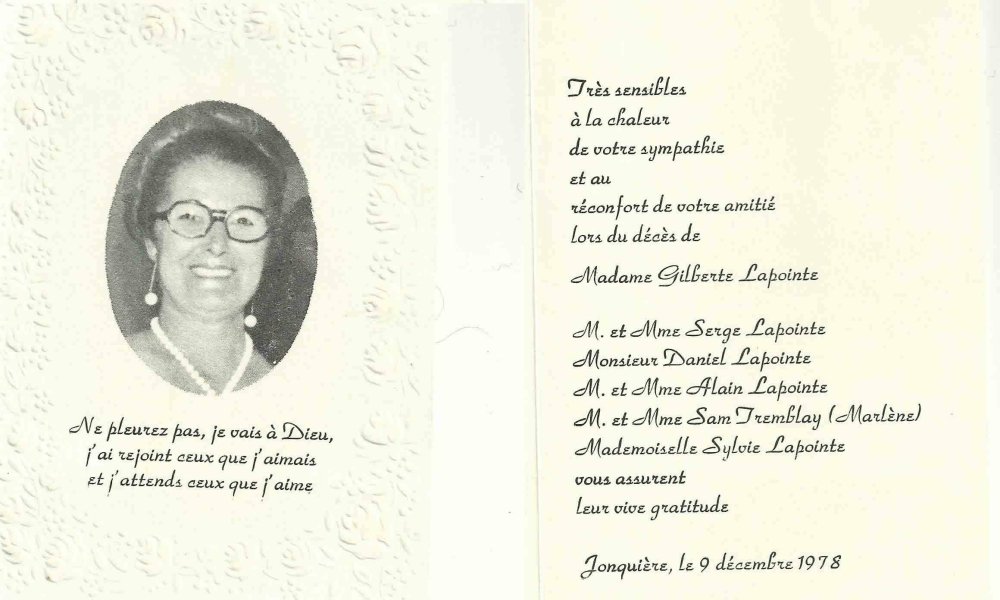 Ne pleurez pas, je vais à Dieu,
j'ai rejoint ceux que j'aimais
et j'attends ceux que j'aime
Très sensibles
à la chaleur
de votre sympathie
et au
réconfort de votre amitié
lors du décès de
Madame Gilberte Lapointe
M. et Mme Serge Lapointe
Monsieur Daniel Lapointe
M. et Mme Alain Lapointe
M. et Mme Sam Tremblay (Marlène)
Mademoiselle Sylvie Lapointe
vous assurent
leur vive gratitude
Jonquière, le 9 décembre 1978